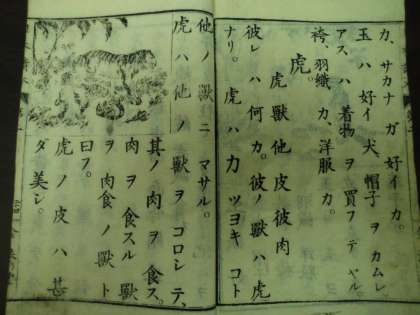 カ、サカナ ガ 好イ
玉 ハ 好イ 犬 帽子 ヲ カムレ、
アス ハ 着物 ヲ 買フ テ ヤル。
袴、羽織 カ、洋服 カ。
虎。
虎 獸 他 皮 彼 肉
彼レ ハ 何カ。彼ノ 獸 ハ 虎
ナリ。 虎 ハ 力 ツヨキ コト
他ノ 獸 ニ マサル。
虎 ハ 他 ノ 獸 ヲ コロシ テ、
其ノ 肉 ヲ 食ス。
肉 ヲ 食スル 獸
ヲ 肉食 ノ 獸 ト
曰フ。
虎 ノ 皮 ハ 甚
ダ 美シ。